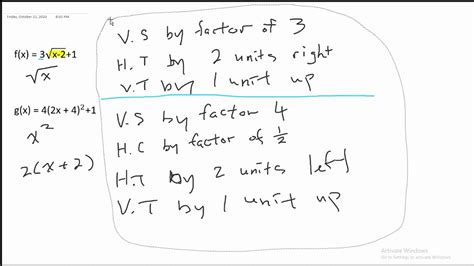 Friday, October 23, 2020 8:05 PM
f(x) = 3√x-2+1
√x
V.S by factor of 3
H.T by 2 units right
V.T by 1 unit up
g(x) = 4(2x + 4)²+1
x²
2(x+2)
V.S by factor 4
H.C by factor of 1/2
H.T by 2 units left
V.T by 1 unit up
Activate Windows
Go to Settings to activate Windows.